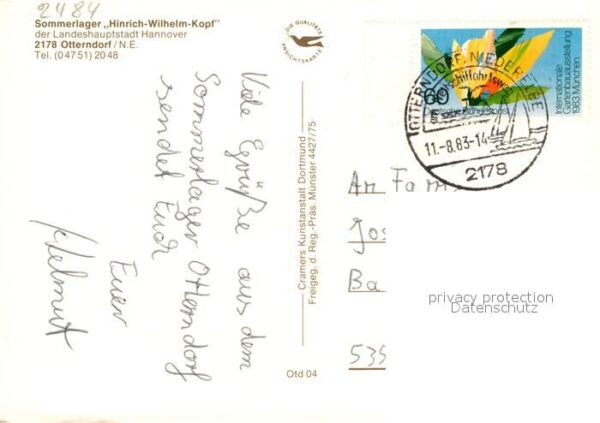 2484
Sommerlager „Hinrich-Wilhelm-Kopf"
der Landeshauptstadt Hannover
2178 Otterndorf / N.E.
Tel. (04751) 2048
Viele Grüße aus dem
Sommerlager Otterndorf
sendet Euch
Euer
Helmut
DIE QUALITÄTS
ANSICHTSKARTE
Cramers Kunstanstalt Dortmund
Freigeg. d. Reg.-Präs. Münster 4427/75
Otd 04
60
Internationale
Gartenbauausstellung
1983 München
OTTERNDORF, NIEDERELBE
11.-8.83-14
2178
An Fam
Jos
Ba
535
privacy protection
Datenschutz